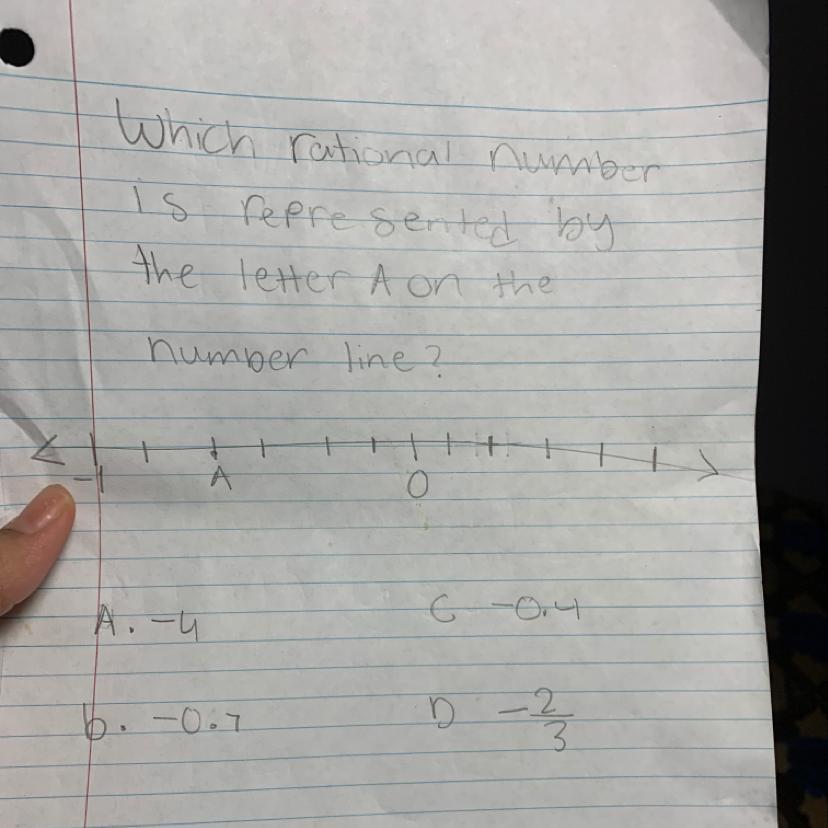 Which rational number
is represented by
the letter A on the
number line?
-1 A 0
A. -4 C -0.4
b. -0.7 D -2/3